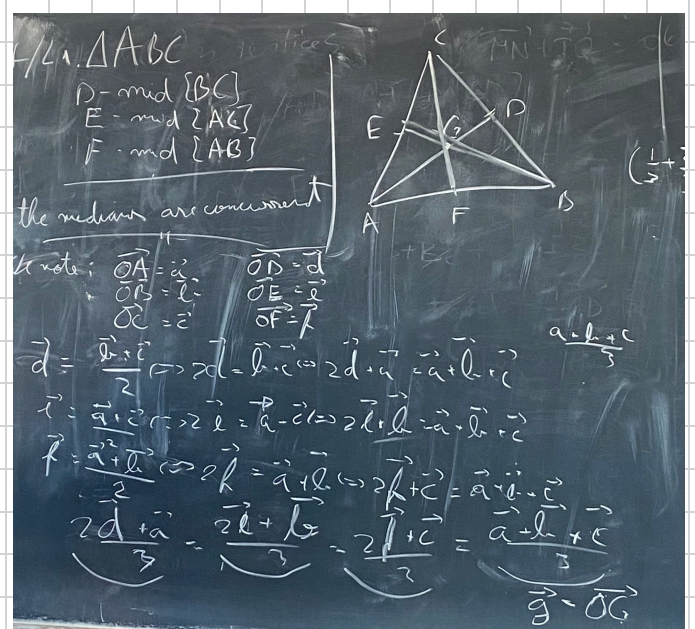 ΔABC
D - mid [BC]
E - mid [AC]
F - mid [AB]
the medians are concurrent
C
E
G
D
A
F
B
note: OA⃗ = a⃗  OD⃗ = d⃗
OB⃗ = b⃗  OE⃗ = e⃗
OC⃗ = c⃗  OF⃗ = f⃗
(a+b+c)/3
d⃗ = (b⃗+c⃗)/2 <=> 2d⃗ = b⃗+c⃗ <=> 2d⃗+a⃗ = a⃗+b⃗+c⃗
e⃗ = (a⃗+c⃗)/2 <=> 2e⃗ = a⃗+c⃗ <=> 2e⃗+b⃗ = a⃗+b⃗+c⃗
f⃗ = (a⃗+b⃗)/2 <=> 2f⃗ = a⃗+b⃗ <=> 2f⃗+c⃗ = a⃗+b⃗+c⃗
(2d⃗+a⃗)/3 = (2e⃗+b⃗)/3 = (2f⃗+c⃗)/3 = (a⃗+b⃗+c⃗)/3
g⃗ = OG⃗